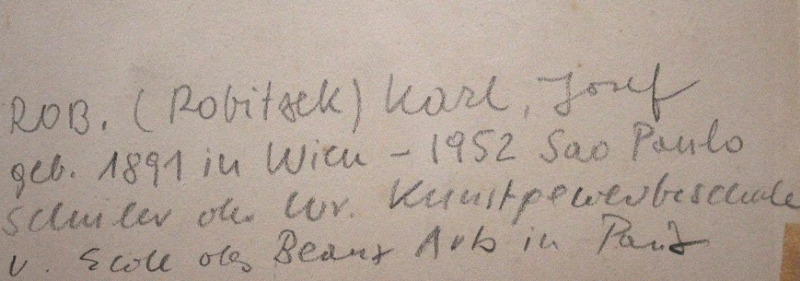 ROB. (Robitsek) Karl, Josef
geb. 1891 in Wien - 1952 Sao Paulo
Schüler der Wr. Kunstgewerbeschule
u. Ecole des Beaux Arts in Paris